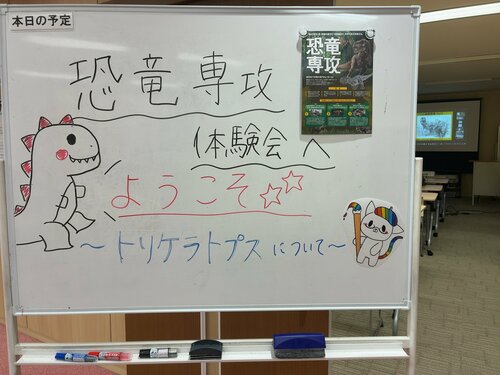 本日の予定
恐竜専攻
体験会へ
ようこそ☆☆
～トリケラトプスについて～
恐竜
専攻